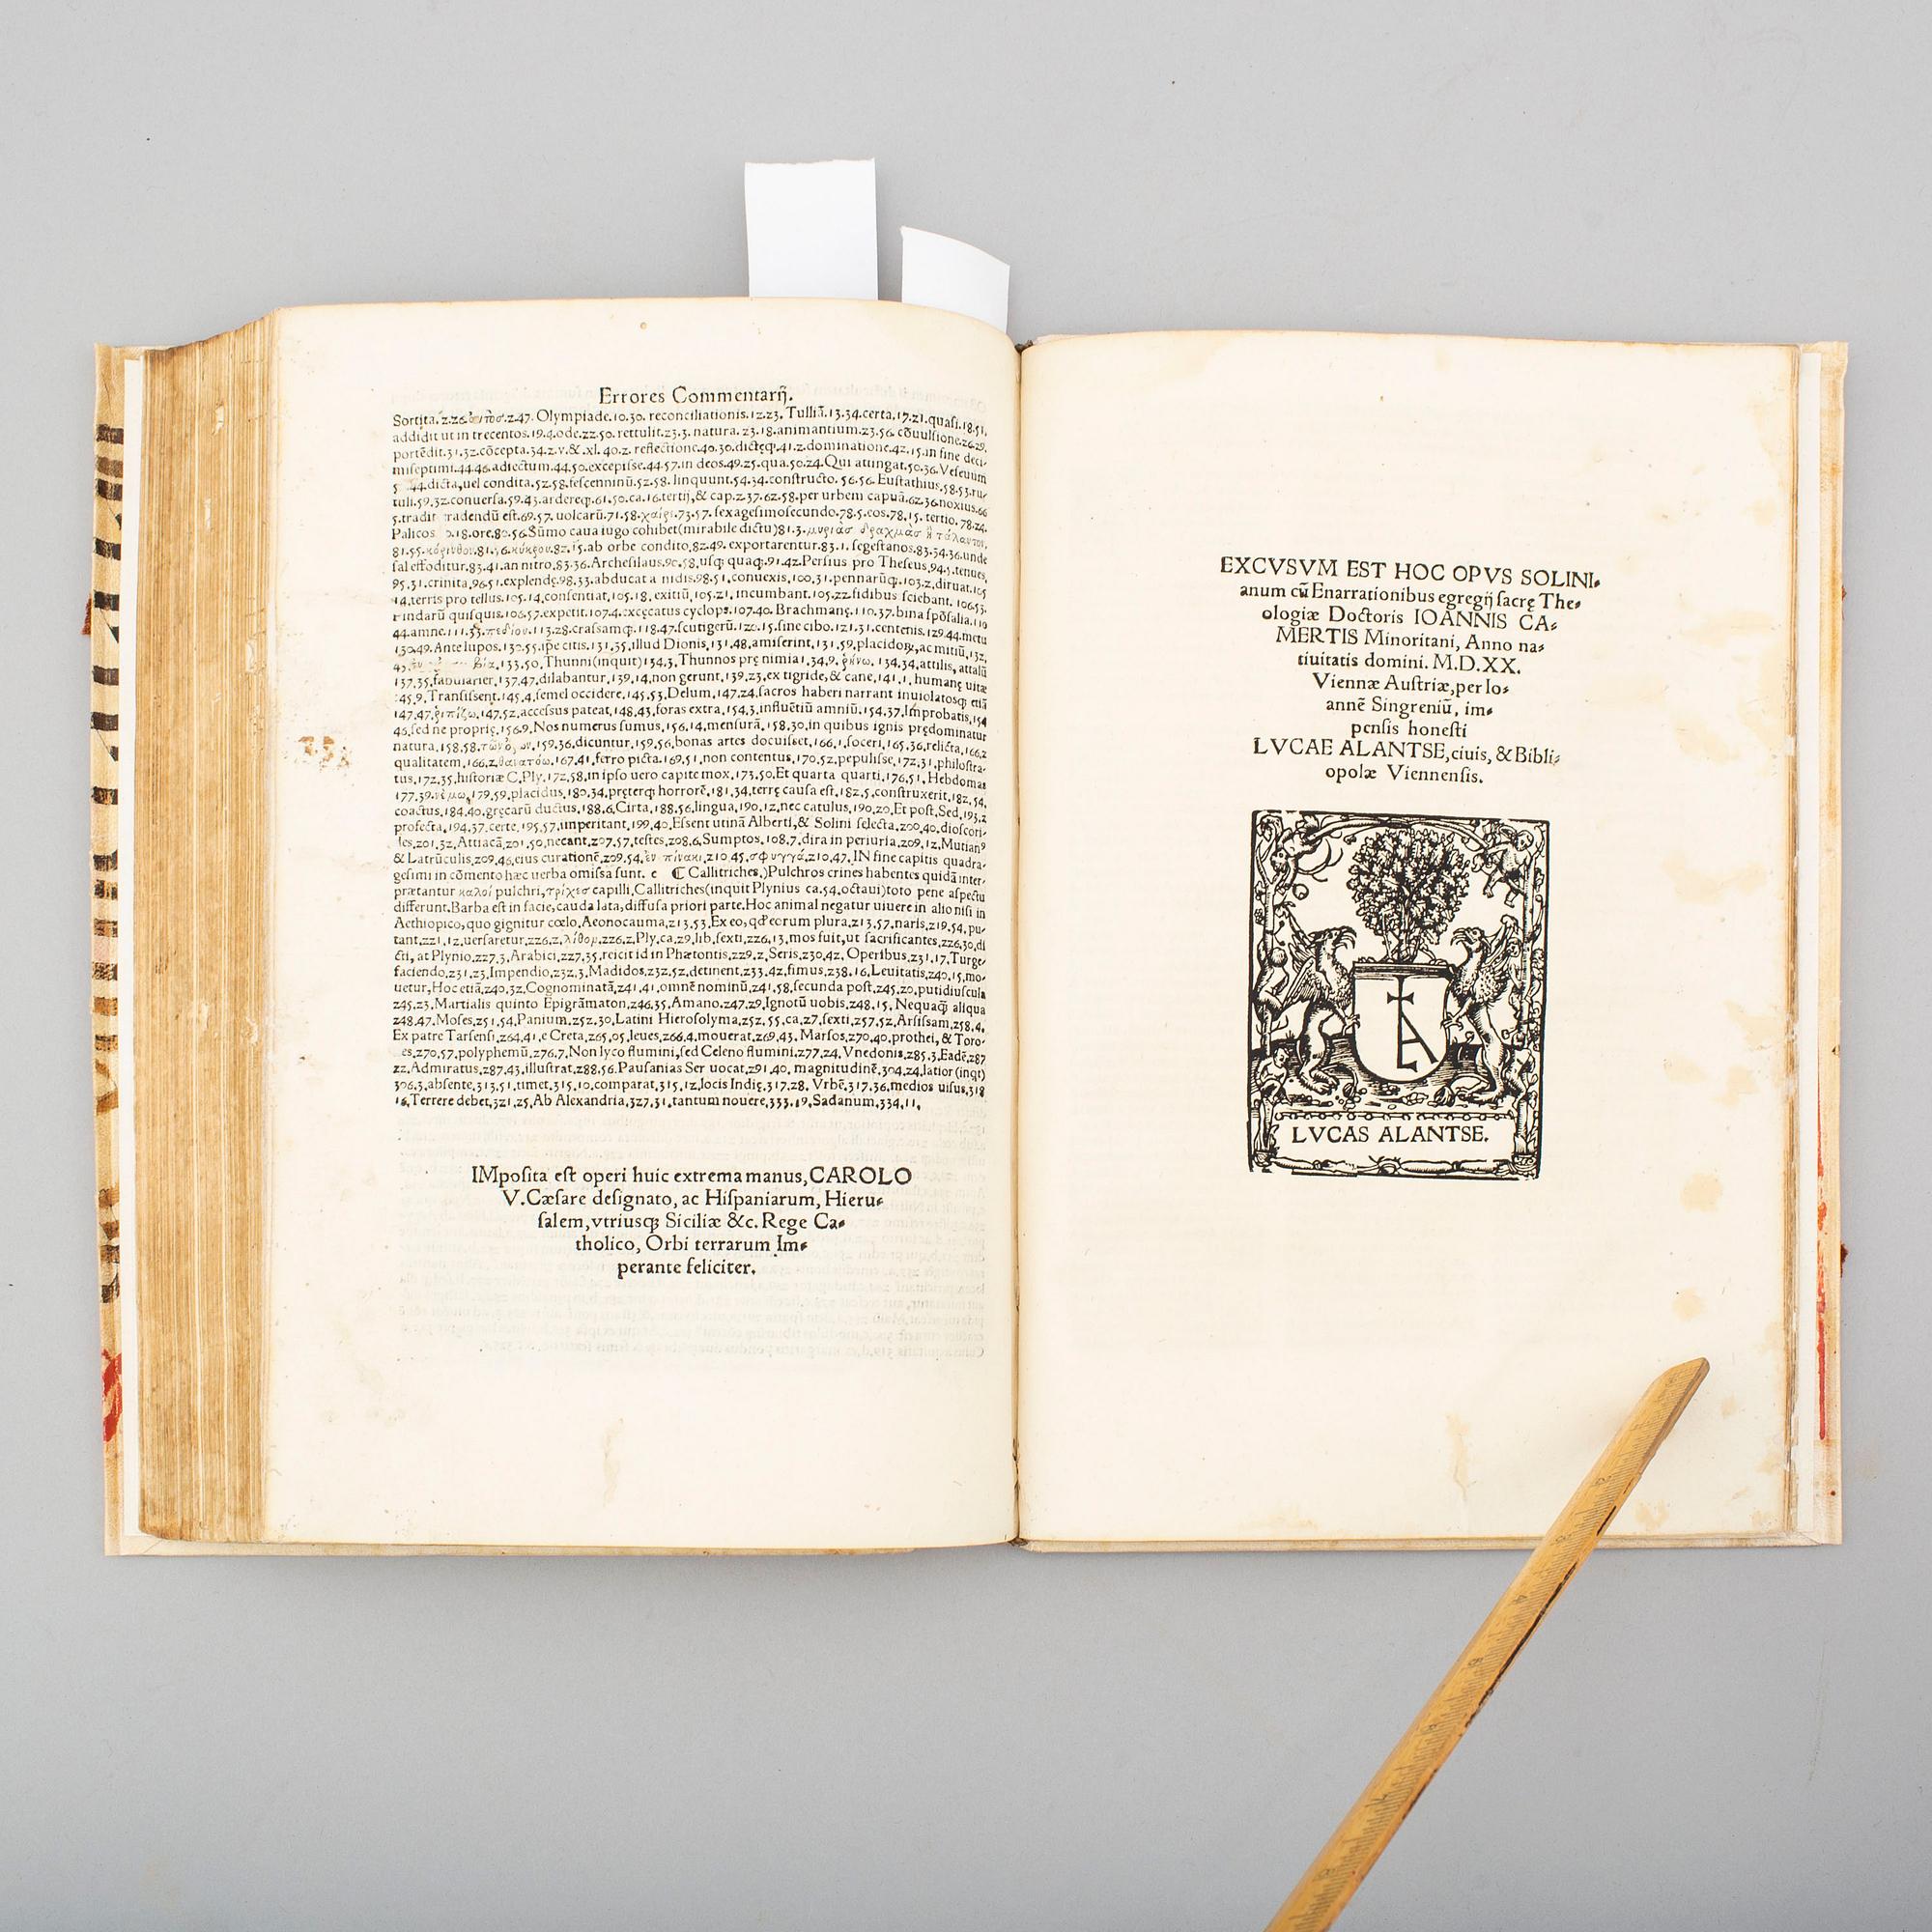 Errores Commentarij.
Sortita.2.26. 2.47. Olympiade.10.30. reconciliationis.12.23. Tulliā.13.34.certa.17.21.quasi.18.51.
addidit ut in trecentos.19.4.ode.22.50. rettulit.23.3. natura. 23.18.animantium.23.56. cōuulsione.26.29.
portēdit.31.32.cōcepta.34.2.v.& .xl. 40.2. reflectione.40.30.dictęq;.41.2.dominatione.42.15.in fine deci-
miseptimi.44.46.adiectum.44.50.excepisse.44.57.in deos.49.25.qua.50.24.Qui attingat.50.36.Veseuum
5 44.dicta,uel condita.52.58.fescenninū.52.58. linquunt.54.34.constructo. 56.56. Eustathius.58.53.ru-
tuli.59.32.conuersa.59.43.ardereq;.61.50.ca.16.tertij,& cap.2.37.62.58.per urbem capuā.62.36.noxius.66
5.tradit radendū est.69.57. uolcarū.71.58.χαῖρε.73.57.sexagesimosecundo.78.5.eos.78.15. tertio. 78.24.
Palicos .18.ore.80.56.Sūmo caua iugo cohibet(mirabile dictu)81.3.μυριὰσ δραχμὰσ ἢ τάλαντον.
81.55.κόρινθον.81. 6.κύκρου.82.15.ab orbe condito.82.49. exportarentur.83.1. segestanos.83.34.36.unde
sal effoditur.83.41.an nitro.83.36.Archesilaus.90.58.usq; quaq;.91.42.Persius pro Theseus.94.5.tenues,
95.31.crinita.96.51.explendę.98.33.abducat a nidis.98.51.conuexis.100.31.pennarūq;.103.2.diruat.105
14.terris pro tellus.105.14.consentiat.105.18.exitiū.105.21. incumbant.105.22.fidibus sciebant. 106.53.
Pindarū quisquis.106.57.expetit.107.4.excęcatus cyclops.107.40. Brachmanę.110.37.bina spōsalia.110
44.amne.111.33.πεδίου.113.28.crassamq;.118.47.scutigerū.120.15.sine cibo.121.31.centenis.129.44.metu
130.49.Ante lupos.130.55.ip̄e citis.131.35.illud Dionis.131.48.amiserint.131.59.placidoꝝ,ac mitiū.132.
βία.133.50.Thunni(inquit)134.3.Thunnos prę nimia 134.9. ῥίνω. 134.34.attilis, attalū
137.35.fabularier.137.47.dilabantur.139.14.non gerunt.139.23.ex tigride,& cane.141.1.humanę uitæ
145.9.Transissent.145.4.semel occidere.145.53.Delum.147.24.sacros haberi narrant inuiolatosq; etiā
147.47.ῥιπίζω.147.52.accessus pateat.148.43.foras extra.154.3.influētiū amniū.154.37.Improbatis.154
46.sed ne proprię.156.9.Nos numerus sumus.156.14.mensurā.158.30.in quibus ignis prędominatur
natura.158.58. .159.36.dicuntur.159.56.bonas artes docuisset.166.1.soceri.165.36.relicta.166.2
qualitatem.166.2. .167.41.ferro picta.169.51.non contentus.170.52.pepulisse.172.31.philostra-
tus.172.35.historiæ C.Ply.172.58.in ipso uero capite mox.173.50.Et quarta quarti.176.51.Hebdomas
177.39.νέμω.179.59.placidus.180.34.pręterq̄ horrorē.181.34.terrę causa est.182.5.construxerit.182.54.
coactus.184.40.gręcarū ductus.188.6.Cirta.188.56.lingua.190.12.nec catulus.190.20.Et post.Sed.193.2
profecta.194.37.certe.195.57.imperitant.199.40.Essent utinā Alberti,& Solini selecta.200.40.dioscori-
des.201.32.Attiacā.201.50.necant.207.57.testes.208.6.Sumptos.108.7.dira in periuria.209.12.Mutianꝰ
& Latrūculis.209.46.eius curationē.209.54.ἐν πίνακι.210.45.σφυγγά.210.47.IN fine capitis quadra-
gesimi in cōmento hæc uerba omissa sunt. e ¶ Callitriches.)Pulchros crines habentes quidā inter-
prætantur καλοὶ pulchri,τρίχεσ capilli.Callitriches(inquit Plynius ca.54.octaui)toto pene aspectu
differunt.Barba est in facie,cauda lata,diffusa priori parte.Hoc animal negatur uiuere in alio nisi in
Aethiopico,quo gignitur cœlo.Aeonocauma.213.53.Ex eo,qd̄ eorum plura.213.57.naris.219.54.pu-
tant.221.12.uersaretur.226.2.λίθομ.226.2.Ply.ca.29.lib.sexti.226.13.mos fuit,ut sacrificantes.226.30.di
cti, at Plynio.227.3.Arabici.227.35.reicit id in Phætontis.229.2.Seris.230.42. Operibus.231.17.Turge-
faciendo.231.23.Impendio.232.3.Madidos.232.52.detinent.233.42.fimus.238.16.Leuitatis.240.15.mo-
uetur,Hoc etiā.240.32.Cognominatā.241.41.omnē nominū.241.58.secunda post.245.20.putidiuscula
245.23.Martialis quinto Epigrāmaton.246.35.Amano.247.29.Ignotū uobis.248.15. Nequaq̄ aliqua
248.47.Moses.251.54.Panium.252.30.Latini Hierosolyma.252.55.ca.27.sexti.257.52.Arsissam.258.4.
Ex patre Tarsensi.264.41.e Creta.265.05.leues.266.4.mouerat.269.43. Marsos.270.40.prothei, & Toro-
es.270.57.polyphemū.276.7.Non lyco flumini,sed Celeno flumini.277.24.Vnedonis.285.3.Eadē.287
22.Admiratus.287.43.illustrat.288.56.Pausanias Ser uocat.291.40. magnitudinē.304.24.latior(inqt)
306.3.absente.313.51.timet.315.10.comparat.315.12.locis Indię.317.28. Vrbē.317.36.medios uisus.318
16.Terrere debet.321.25.Ab Alexandria.327.31.tantum nouere.333.19.Sadanum.334.11.
IMposita est operi huic extrema manus,CAROLO
V.Cæsare designato, ac Hispaniarum, Hieru-
salem,vtriusq; Siciliæ &c. Rege Ca-
tholico, Orbi terrarum Im-
perante feliciter.
EXCVSVM EST HOC OPVS SOLINI-
anum cū Enarrationibus egregij sacrę The-
ologiæ Doctoris IOANNIS CA-
MERTIS Minoritani, Anno na-
tiuitatis domini. M.D.XX.
Viennæ Austriæ,per Io-
annē Singreniū, im-
pensis honesti
LVCAE ALANTSE,ciuis, & Bibli-
opolæ Viennensis.
LA
LVCAS ALANTSE.